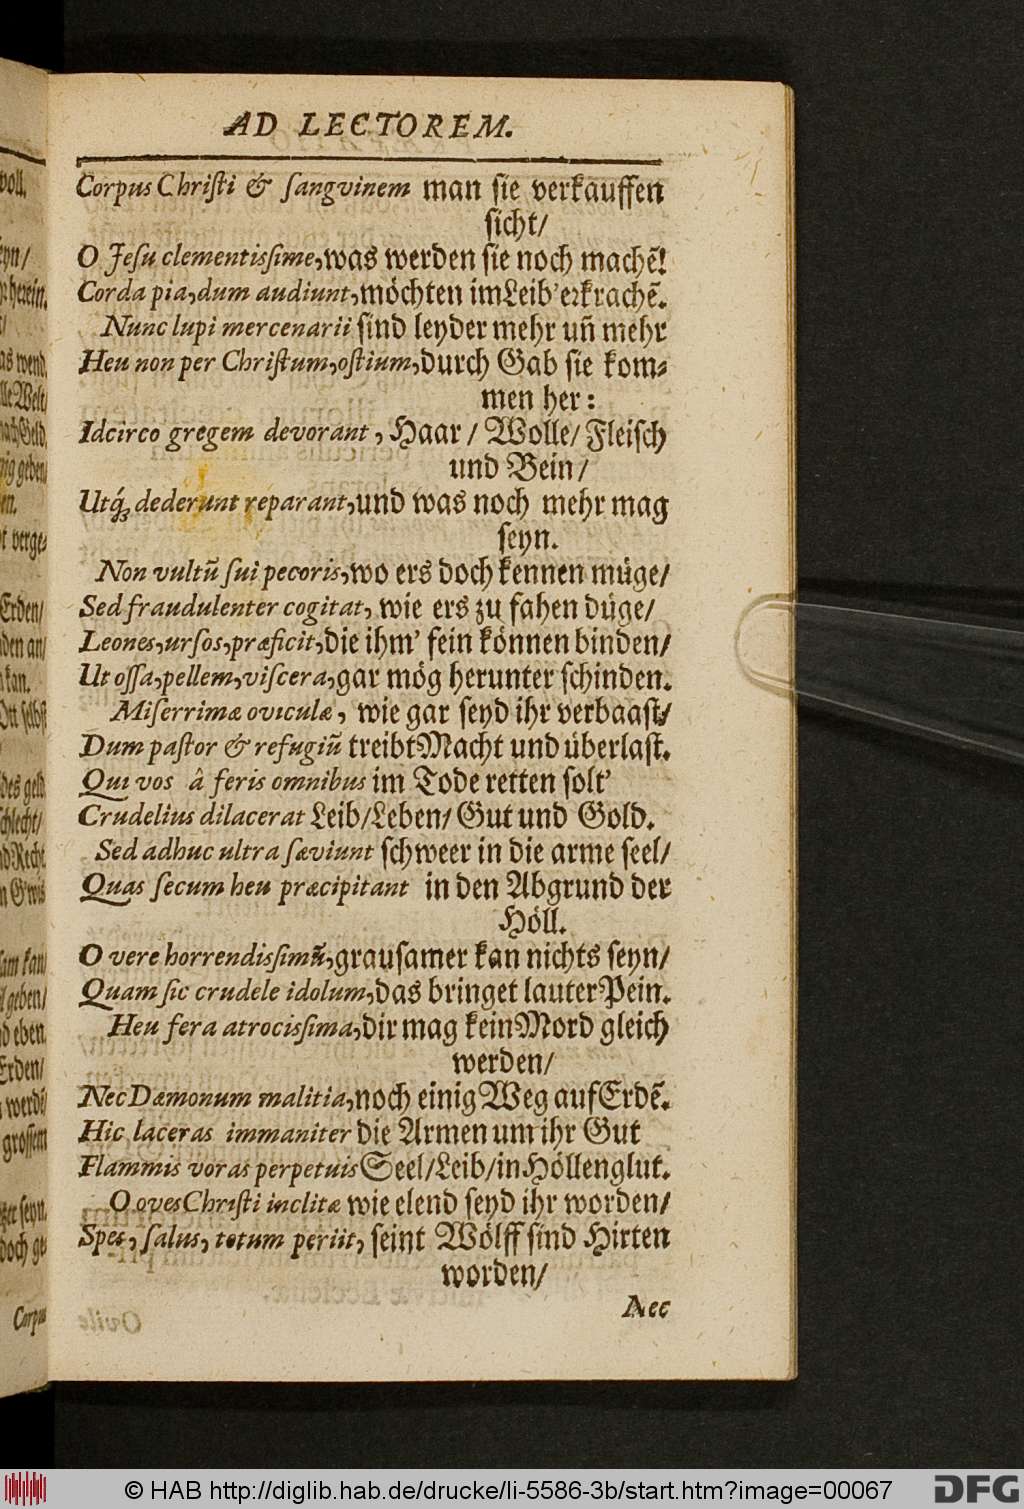 AD LECTOREM.
Corpus Chriſti & ſangvinem man ſie verkauffen
ſicht/
O Jeſu clementisſime, was werden ſie noch machẽ!
Corda pia, dum audiunt, möchten im Leib' erkrachẽ.
Nunc lupi mercenarii ſind leyder mehr uñ mehr
Heu non per Chriſtum, oſtium, durch Gab ſie kom⸗
men her:
Idcirco gregem devorant, Haar / Wolle/ Fleiſch
und Bein/
Utq́; dederunt reparant, und was noch mehr mag
ſeyn.
Non vultũ ſui pecoris, wo ers doch kennen müge/
Sed fraudulenter cogitat, wie ers zu fahen düge/
Leones, urſos, præficit, die ihm' fein können binden/
Ut oſſa, pellem, viſcera, gar mög herunter ſchinden.
Miſerrimæ oviculæ, wie gar ſeyd ihr verbaaſt/
Dum paſtor & refugiũ treibt Macht und überlaſt.
Qui vos â feris omnibus im Tode retten ſolt'
Crudelius dilacerat Leib/Leben/ Gut und Gold.
Sed adhuc ultra ſæviunt ſchweer in die arme ſeel/
Quas ſecum heu præcipitant in den Abgrund der
Höll.
O vere horrendisſimũ, grauſamer kan nichts ſeyn/
Quam ſic crudele idolum, das bringet lauter Pein.
Heu fera atrocisſima, dir mag kein Mord gleich
werden/
Nec Dæmonum malitia, noch einig Weg auf Erdẽ.
Hic laceras immaniter die Armen um ihr Gut
Flammis voras perpetuis Seel/Leib/in Höllenglut.
O oves Chriſti inclitæ wie elend ſeyd ihr worden/
Spes, ſalus, totum periit, ſeint Wölff ſind Hirten
worden/
Nec
voll.
herein.
as wend,
geben/
en.
verge⸗
Erden/
den an/
kan.
Ott ſelbſt
des geld.
ſchlecht/
kan/
geben/
eben.
Erden/
groſſem
ſeyn.
doch
Corpus
© HAB http://diglib.hab.de/drucke/li-5586-3b/start.htm?image=00067
DFG